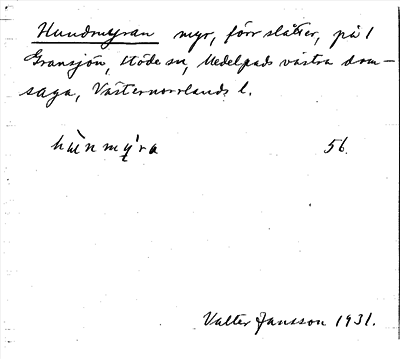 Hundmyran myr, förr slåtter, på
Gransjön, Stöde sn, Medelpads västra dom-
saga, Västernorrlands l.
hùnmý̨ra 56.
Valter Jansson 1931.